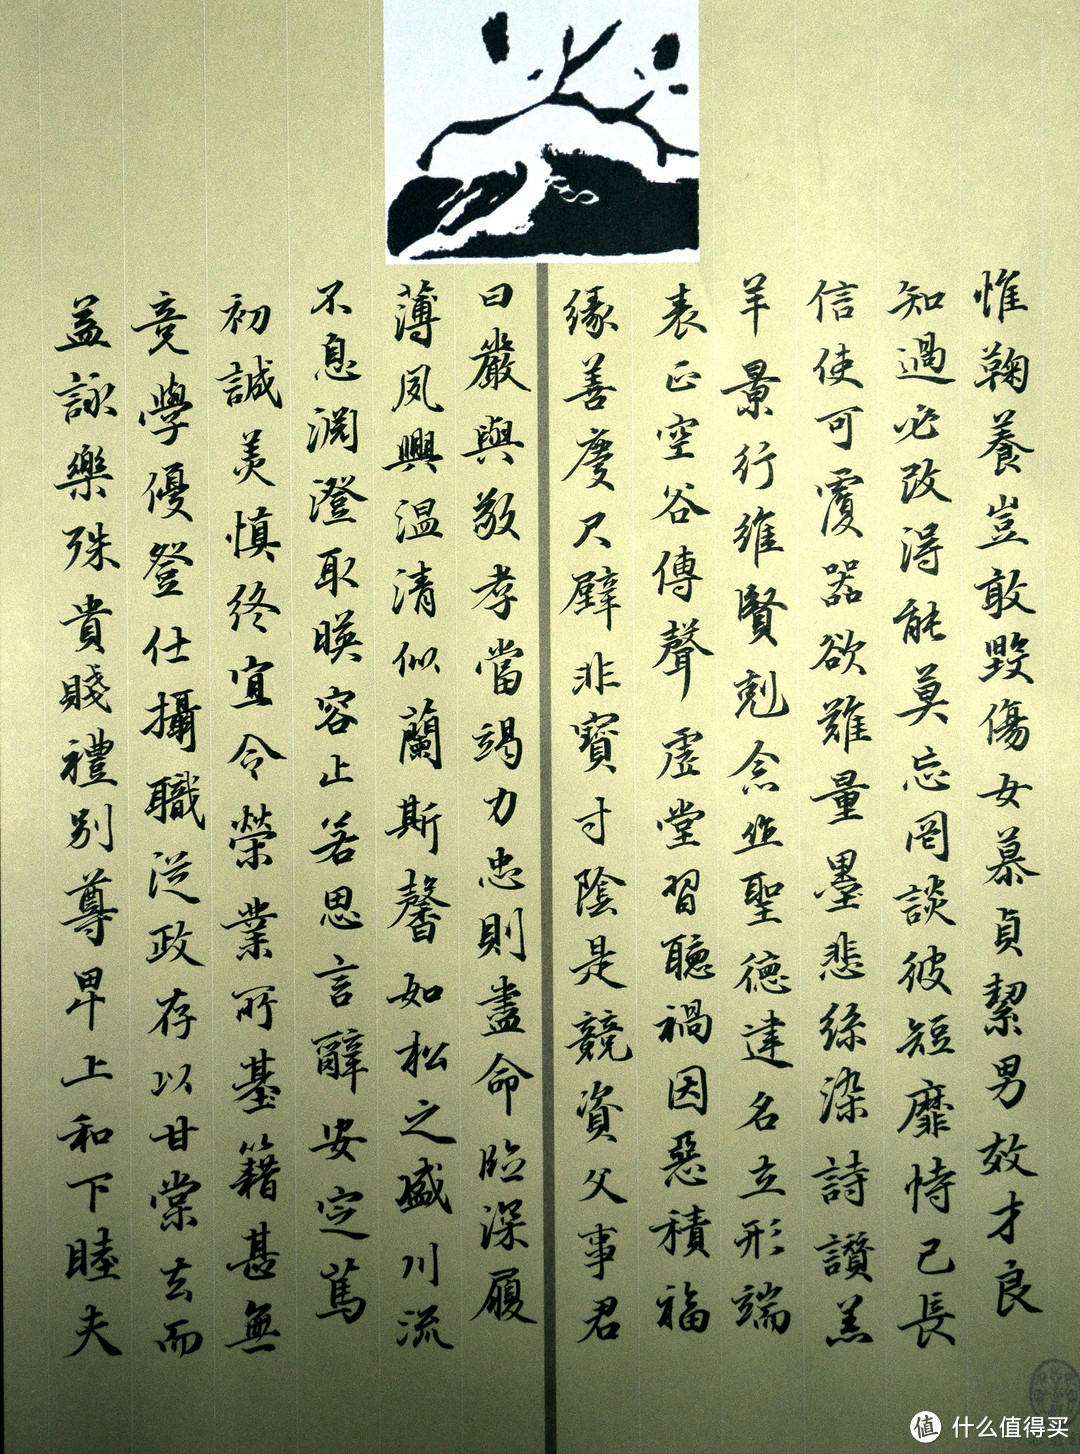 惟鞠養豈敢毀傷女慕貞絜男效才良
知過必改得能莫忘罔談彼短靡恃己長
信使可覆器欲難量墨悲絲染詩讚羔
羊景行維賢剋念作聖德建名立形端
表正空谷傳聲虛堂習聽禍因惡積福
緣善慶尺璧非寶寸陰是競資父事君
曰嚴與敬孝當竭力忠則盡命臨深履
薄夙興温清似蘭斯馨如松之盛川流
不息淵澄取暎容止若思言辭安定篤
初誠美慎終宜令榮業所基籍甚無
竟學優登仕攝職從政存以甘棠去而
益詠樂殊貴賤禮別尊卑上和下睦夫
值 什么值得买